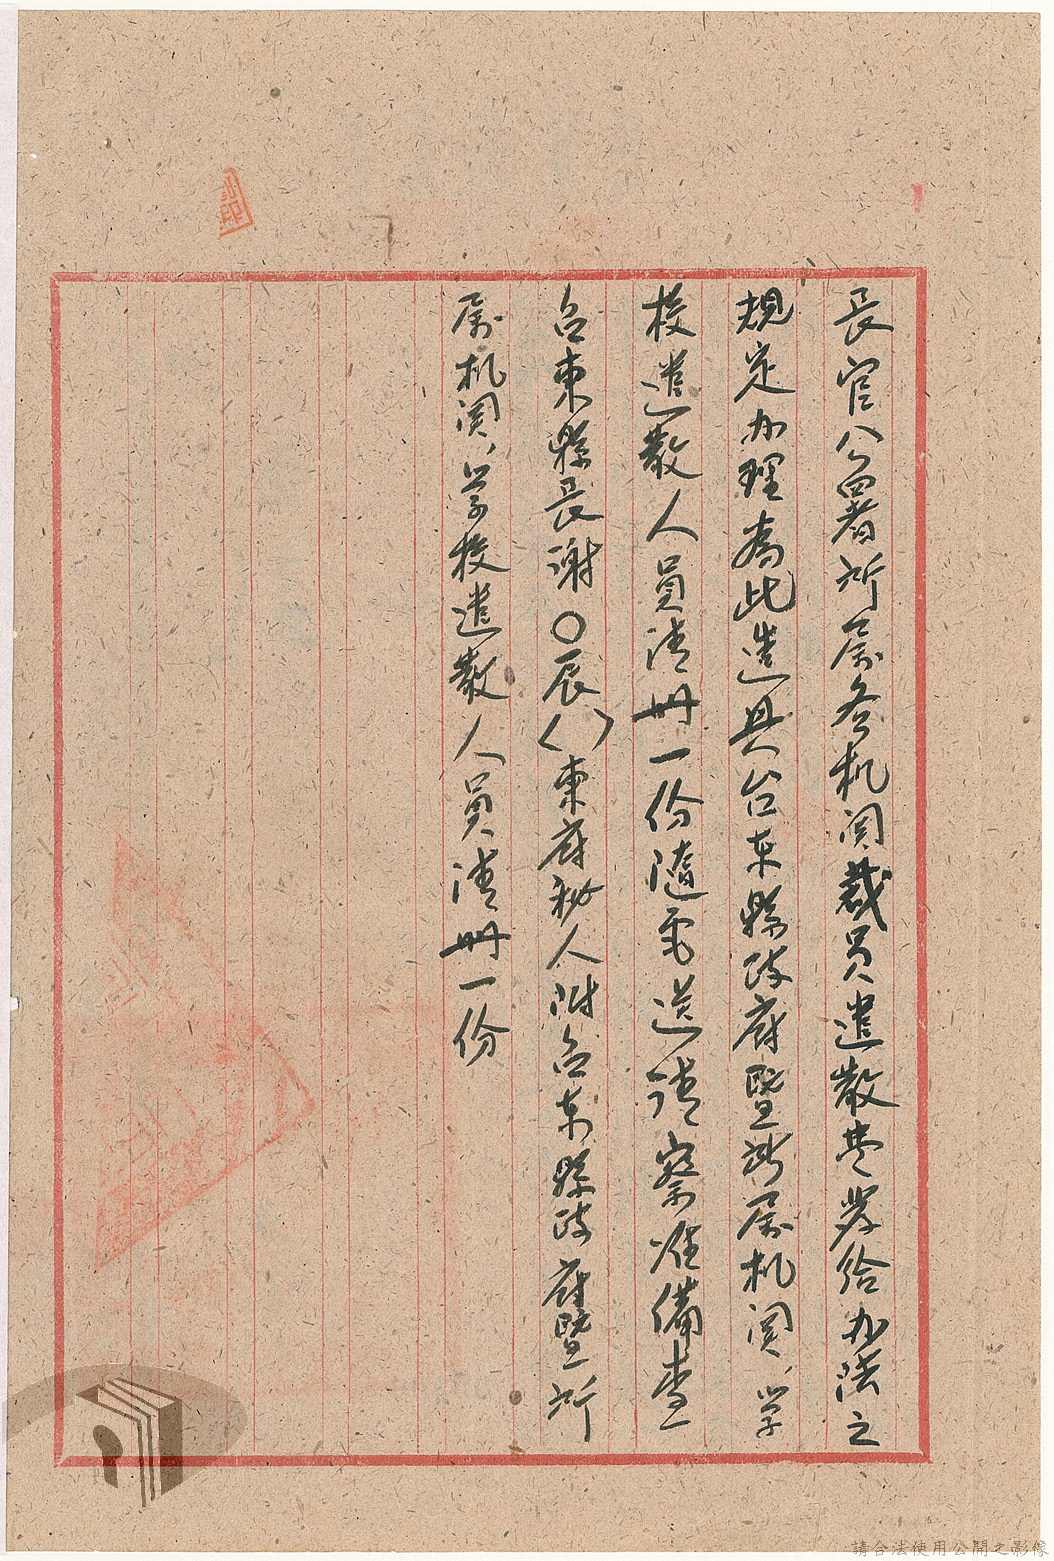 長官公署所属各机関裁員遣散費發給办法之
規定办理為此造具台东縣政府暨所属机関、学
校遣散人員清册一份隨電送請察准備查
台東縣長謝〇辰()東府秘人附台东縣政府暨所
属机関、学校遣散人員清册一份
請合法使用公開之影像